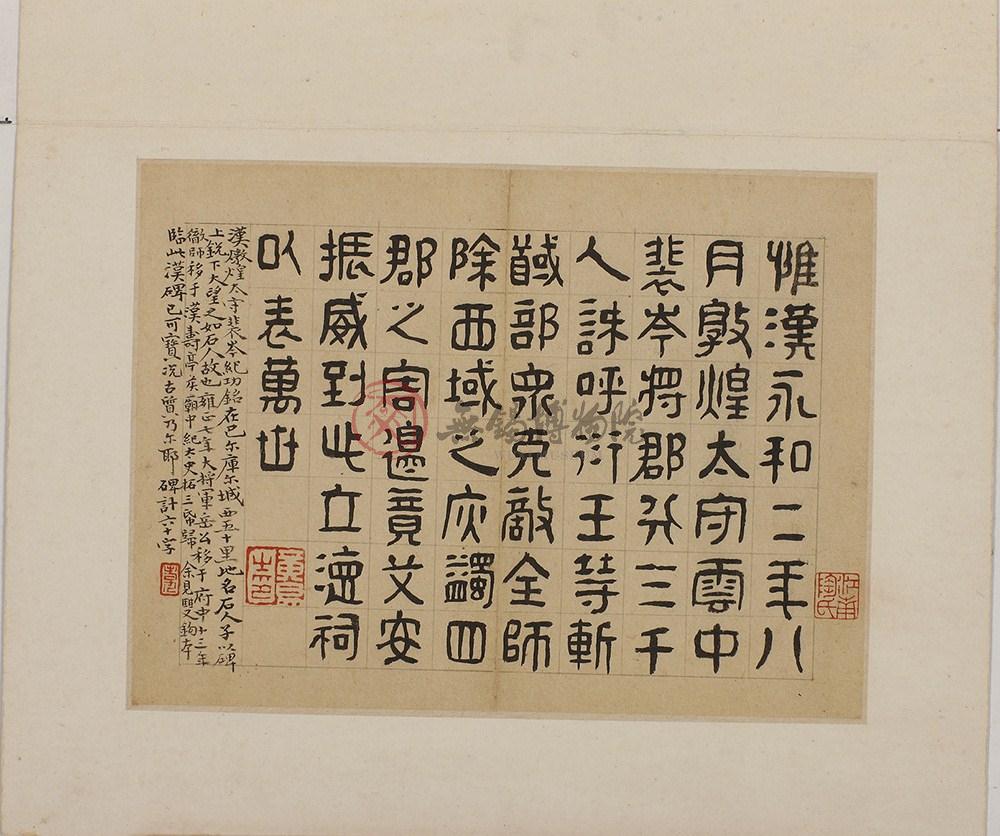 惟漢永和二年八
月敦煌太守雲中
裴岑將郡兵三千
人誅呼衍王等斬
馘部衆克敵全師
除西域之疢蠲四
郡之害邊竟艾安
振威到此立德祠
以表萬世
漢燉煌太守裴岑紀功銘在巴尔庫尔城西五十里地名石人子以碑
上銳下大望之如石人故也雍正七年大將軍岳公移于府中十三年
徹師移于漢壽亭矦廟中紀太史拓三帋歸余見雙鈎本
臨此漢碑已可寶况古質乃尓耶碑計六十字
江甫
陶氏
無錫博物院